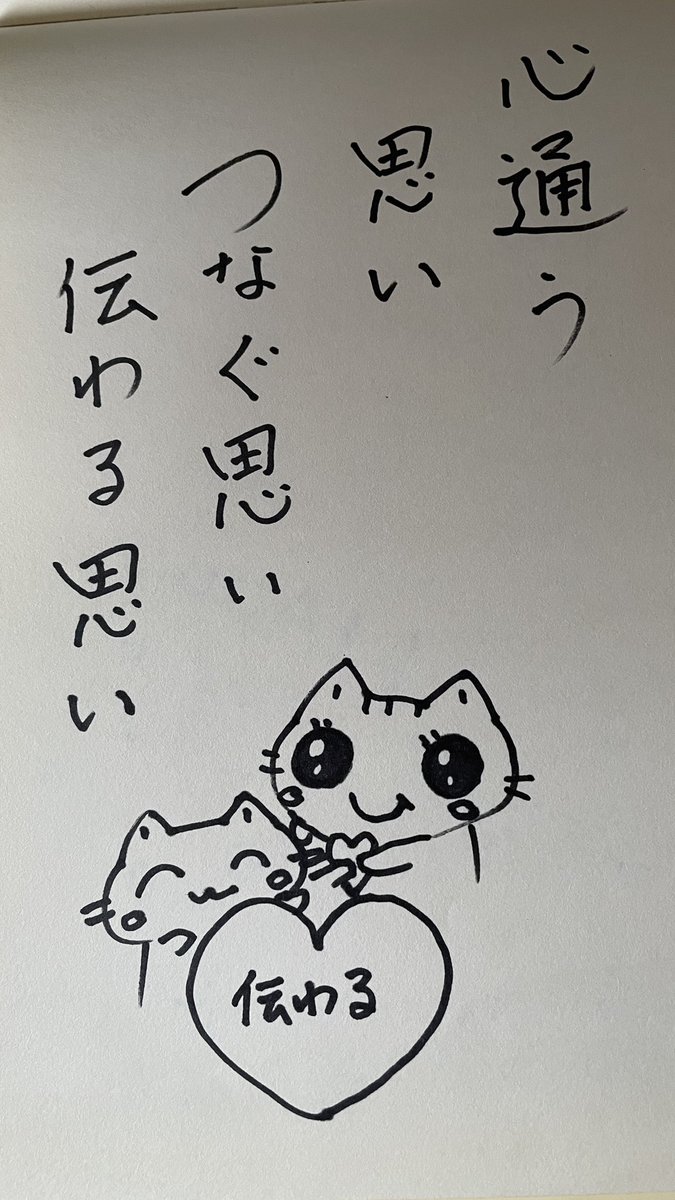 心通う
思い
つなぐ思い
伝わる思い
伝わる